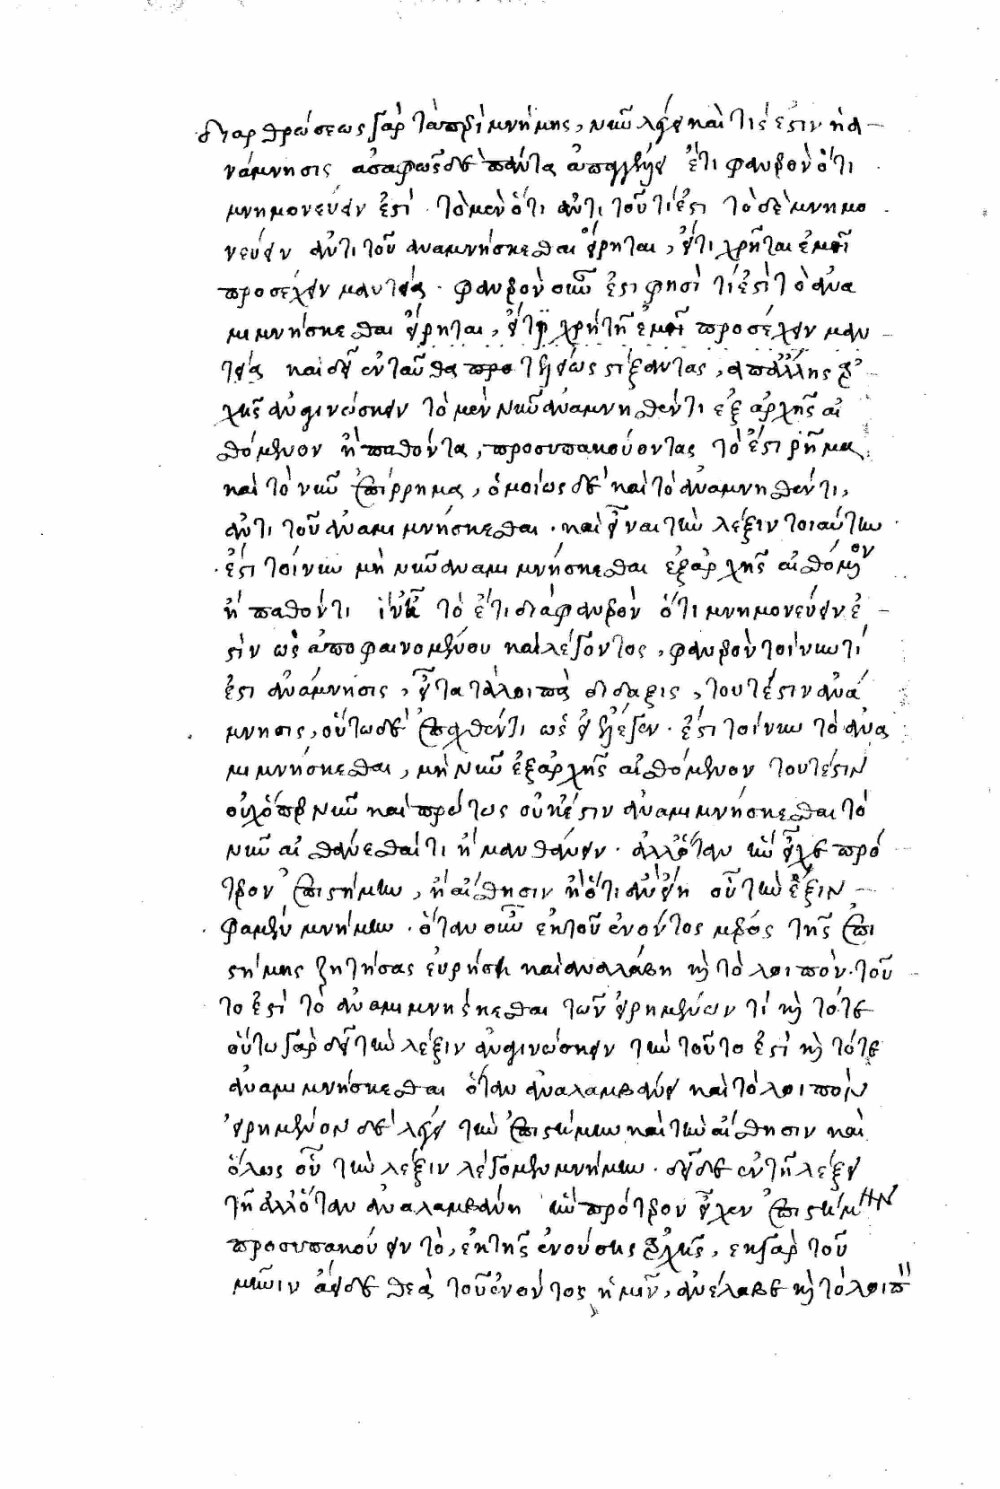 διαρθρώσεως γὰρ τὰ περὶ μνήμης, νῦν λέγει καὶ τίς ἐστιν ἡ ἀ
νάμνησις ἀσαφῶς δὲ πάντα ἀπαγγέλλει ἔτι φανερὸν ὅτι
μνημονεύειν ἐστί. τὸ μὲν ὅτι ἀντὶ τοῦ τί ἐστι τὸ δὲ μνημο
νεύειν ἀντὶ τοῦ ἀναμνήσκεσθαι εἴρηται, εἴ τι χρῆται ἐμοὶ
προσέχειν μαντείᾳ. φανερὸν οὖν ἐστι φησὶ τί ἐστὶ τὸ ἀνα
μιμνήσκεσθαι εἴρηται, χρὴ τῇ ἐμοὶ προσέχειν μαν
τείᾳ καὶ δεῖ ἐνταῦθα πρὸ στίξαντας, ἀπ' ἄλλης ἀρ
χῆς ἀναγινώσκειν τὸ μὲν νῦν ἀναμνησθέντι ἐξ ἀρχῆς αἰ
σθόμενον ἢ παθόντα, προσυπακούοντας τὸ ἐστὶ ῥῆμα,
καὶ τὸ νῦν ἐπίρρημα, ὁμοίως δὲ καὶ τὸ ἀναμνησθέντι,
ἀντὶ τοῦ ἀναμιμνήσκεσθαι. καὶ εἶναι τὴν λέξιν τοιαύτην.
ἔστι τοίνυν μὴ νῦν ἀναμιμνήσκεσθαι ἐξ ἀρχῆς αἰσθόμενον
ἢ παθόντι τὸ ἔτι δὲ φανερὸν ὅτι μνημονεύειν ἐ
στὶν ὡς ἀποφαινομένου καὶ λέγοντος, φανερὸν τοίνυν τί
ἐστι ἀνάμνησις, εἶτα τὰ λοιπὰ τουτέστιν ἀνά
μνησις, οὕτως δὲ ἐπαχθέντι ὡς ἔλεγεν. ἔστι τοίνυν τὸ ἀνα
μιμνήσκεσθαι, μὴ νῦν ἐξ ἀρχῆς αἰσθόμενον τουτέστιν
οὐχ ὅπερ νῦν καὶ πρώτως οὐκ ἔστιν ἀναμιμνήσκεσθαι τὸ
νῦν αἰσθάνεσθαί τι ἢ μανθάνειν. ἀλλ' ὅταν ἣν εἶχε πρό
τερον ἐπιστήμην, ἢ αἴσθησιν ἢ ὅτι ἂν εἴη οὗ τὴν ἕξιν
φαμὲν μνήμην. ὅταν οὖν ἐκ τοῦ ἐνόντος μέρος τῆς ἐπι
στήμης ζητήσας εὑρήσῃ καὶ ἀναλάβῃ καὶ τὸ λοιπὸν. τοῦ
το ἐστὶ τὸ ἀναμιμνήσκεσθαι τῶν εἰρημένων τί καὶ τότε
οὕτω γὰρ δεῖ τὴν λέξιν ἀναγινώσκειν τὴν τοῦτο ἐστὶ καὶ τότε
ἀναμιμνήσκεσθαι ὅταν ἀναλαμβάνει καὶ τὸ λοιπὸν
εἰρημένον δὲ λέγει τὴν ἐπιστήμην καὶ τὴν αἴσθησιν καὶ
ὅλως οὗ τὴν λέξιν λέγομεν μνήμην. δεῖ δὲ ἐν τῇ λέξει
τῇ ἀλλ' ὅταν ἀναλαμβάνῃ ἣν πρότερον εἶχεν ἐπιστήμην
προσυπακούειν τὸ, ἐκ τῆς ἐνούσης ἀρχῆς, ἐκ γὰρ τοῦ
τοῦ ἐνόντος ἡμῖν, ἀνέλαβε καὶ τὸ λοιπὸν